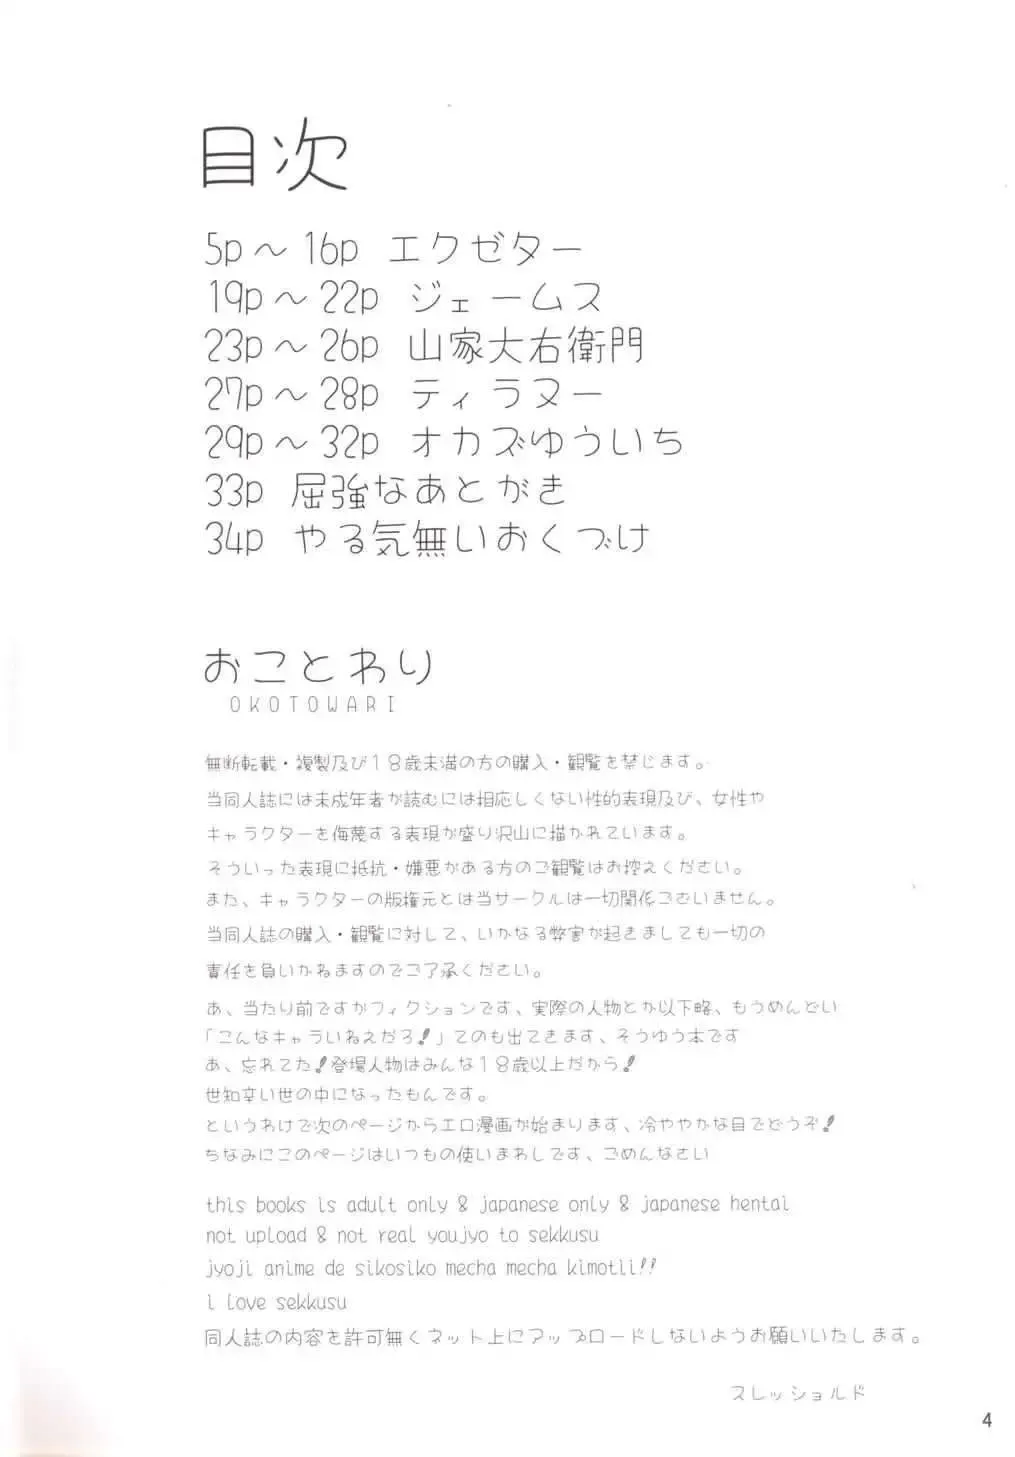 目次
5p～16p エクゼター
19p～22p ジェームス
23p～26p 山家大右衛門
27p～28p ティラヌー
29p～32p オカズゆういち
33p 屈強なあとがき
34p やる気無いおくづけ
おことわり
OKOTOWARI
無断転載・複製及び18歳未満の方の購入・観覧を禁じます。
当同人誌には未成年者が読むには相応しくない性的表現及び、女性や
キャラクターを侮蔑する表現が盛り沢山に描かれています。
そういった表現に抵抗・嫌悪がある方のご観覧はお控えください。
また、キャラクターの版権元とは当サークルは一切関係ございません。
当同人誌の購入・観覧に対して、いかなる弊害が起きましても一切の
責任を負いかねますのでご了承ください。
あ、当たり前ですがフィクションです、実際の人物とか以下略、もうめんどい
「こんなキャラいねえだろ！」てのも出てきます、そうゆう本です
あ、忘れてた！登場人物はみんな18歳以上だから！
世知辛い世の中になったもんです。
というわけで次のページからエロ漫画が始まります、冷ややかな目でどうぞ！
ちなみにこのページはいつもの使いまわしです、ごめんなさい
this books is adult only & japanese only & japanese hentai
同人誌の内容を許可無くネット上にアップロードしないようお願いいたします。
スレッショルド
4